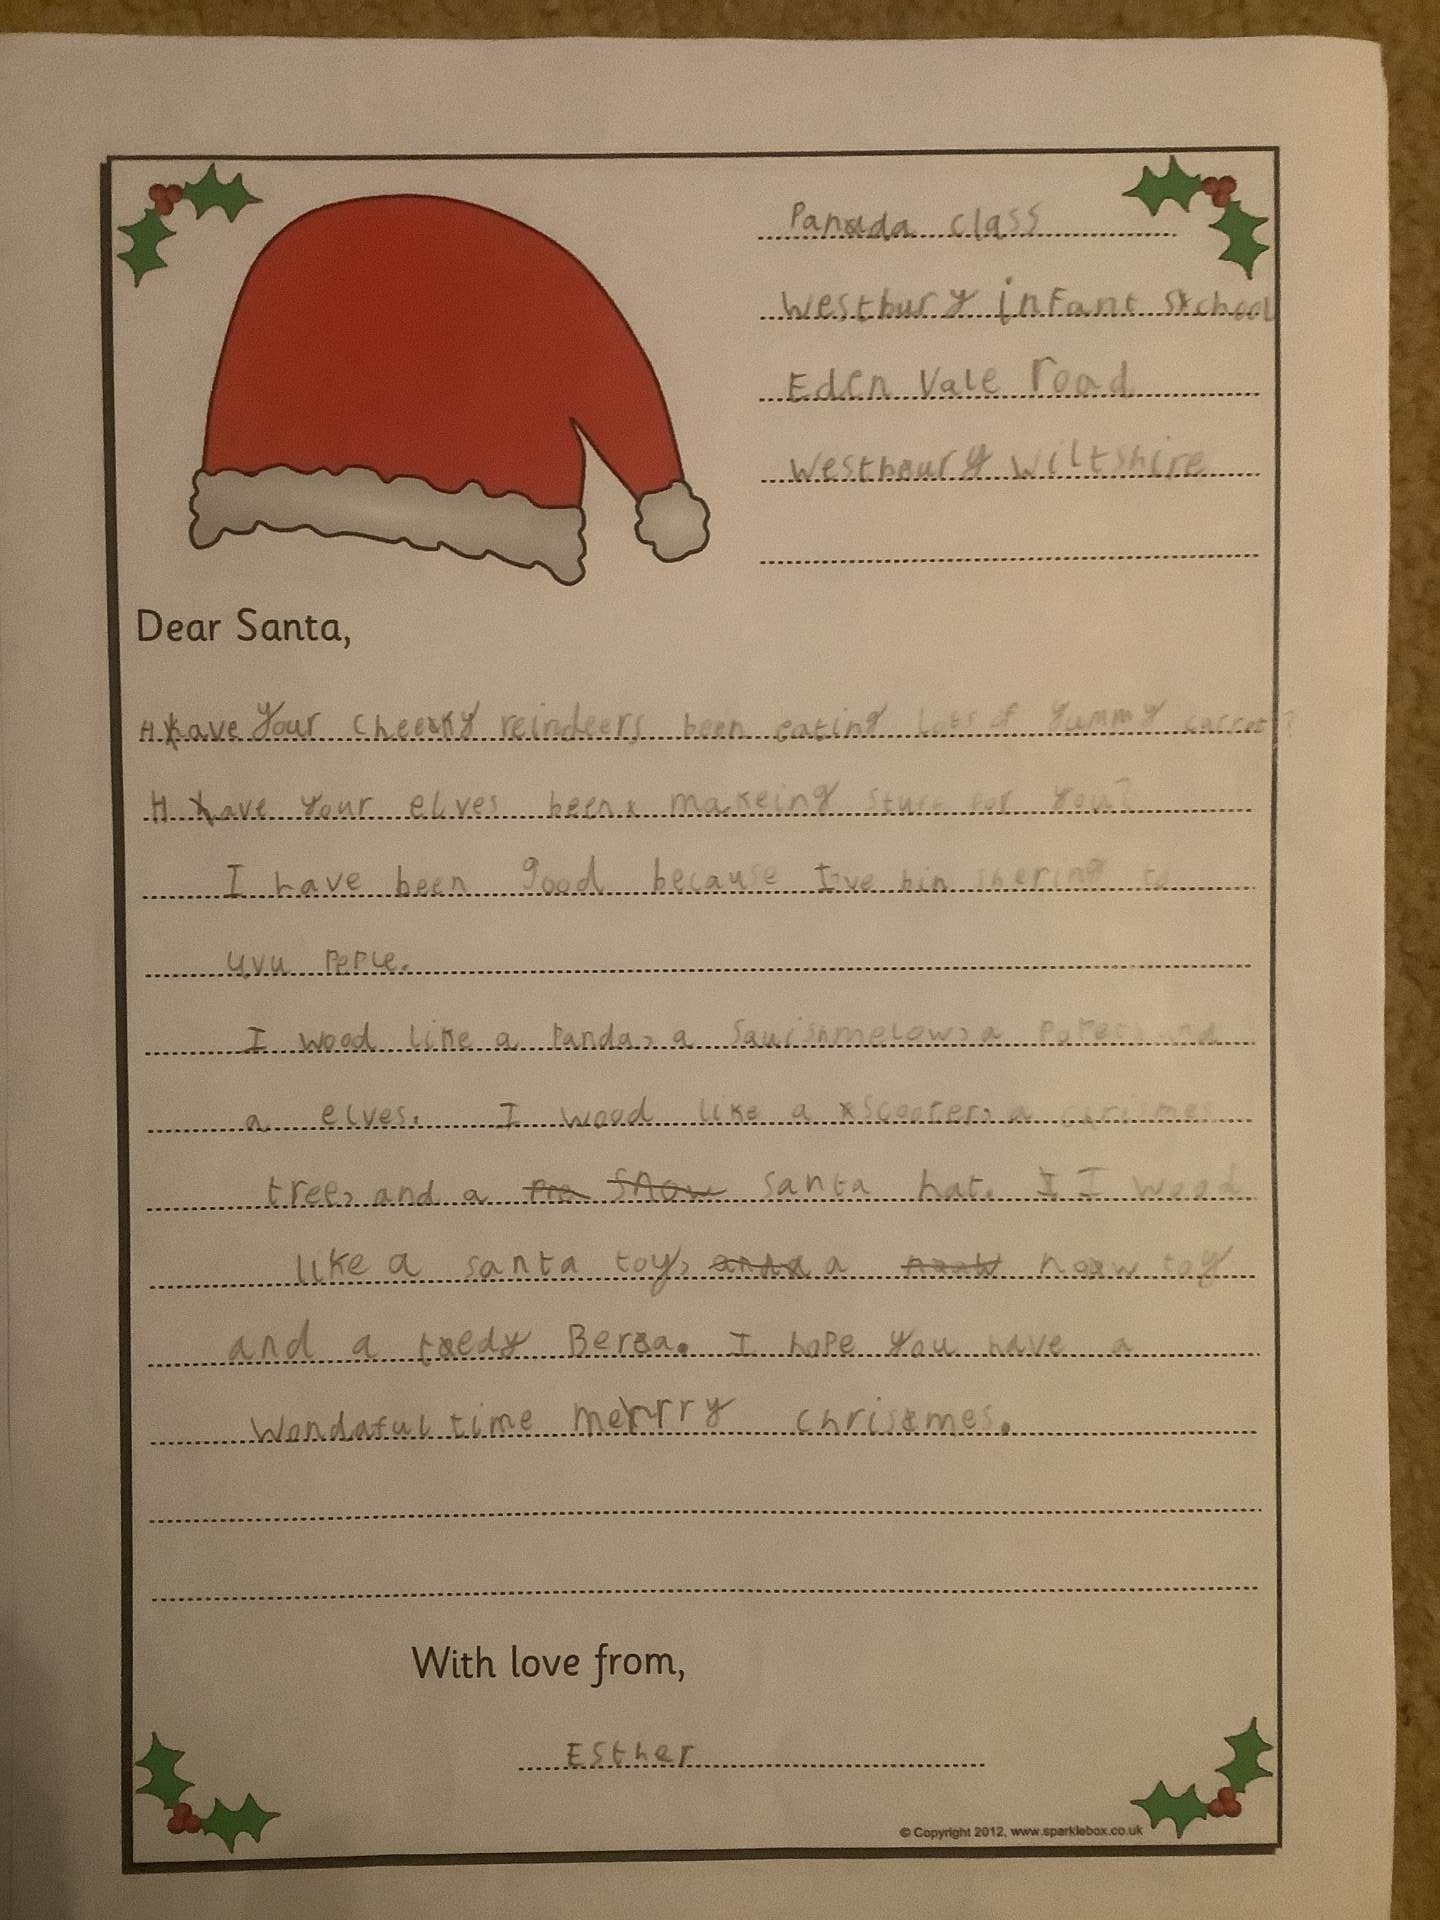 Panda class
Westbury infant School
Eden Vale road
Westbury Wiltshire
Dear Santa,
Have your cheeky reindeers been eating lots of yummy carrot?
Have your elves been makeing stuff for you?
I have been good because I've bin shering to
uvu peple.
I wood like a panda, a Squishmelow, a and
a elves. I wood like a scooter, a chrismes
tree, and a santa hat. I wood
like a santa toy, a now toy
and a tedy Bera. I hope you have a
Wondaful time merry chrismes.
With love from,
Esther
© Copyright 2012, www.sparklebox.co.uk